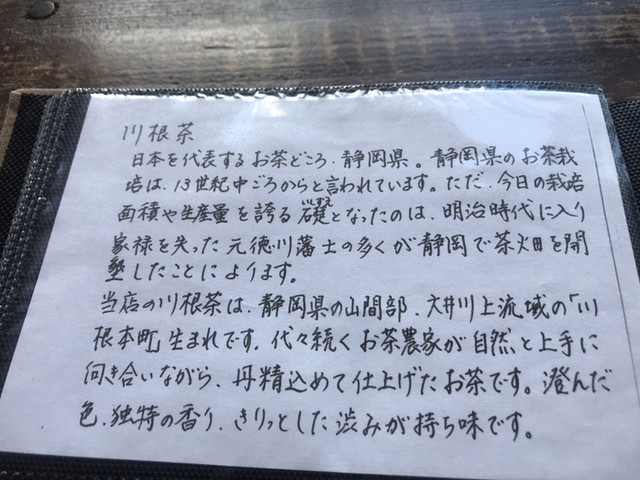 川根茶
日本を代表するお茶どころ、静岡県。静岡県のお茶栽
培は、13世紀中ごろからと言われています。ただ、今日の栽培
面積や生産量を誇る礎となったのは、明治時代に入り
いしずえ
家禄を失った元徳川藩士の多くが静岡で茶畑を開
墾したことによります。
当店の川根茶は、静岡県の山間部、大井川上流域の「川
根本町」生まれです。代々続くお茶農家が自然と上手に
向き合いながら、丹精込めて仕上げたお茶です。澄んだ
色、独特の香り、きりっとした渋みが持ち味です。